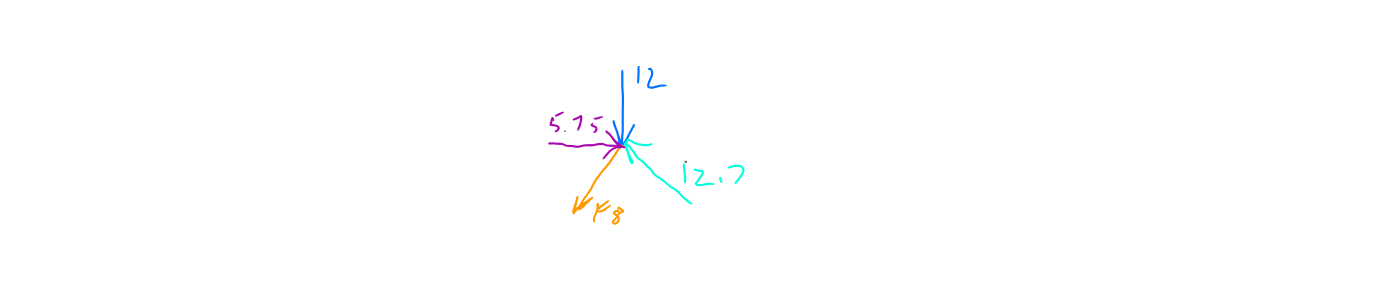 12
5.75
12.7
F8